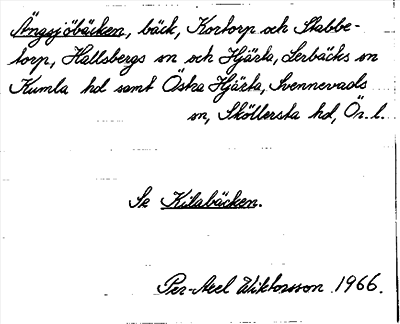 Ängsjöbäcken, bäck, Kortorp och Stabbe-
torp, Hallsbergs sn och Hjärta, Lerbäcks sn
Kumla hd samt Östra Hjärta, Svennevads
sn, Sköllersta hd, Ör. l.
Se Kilabäcken.
Per-Axel Wiktorsson 1966.